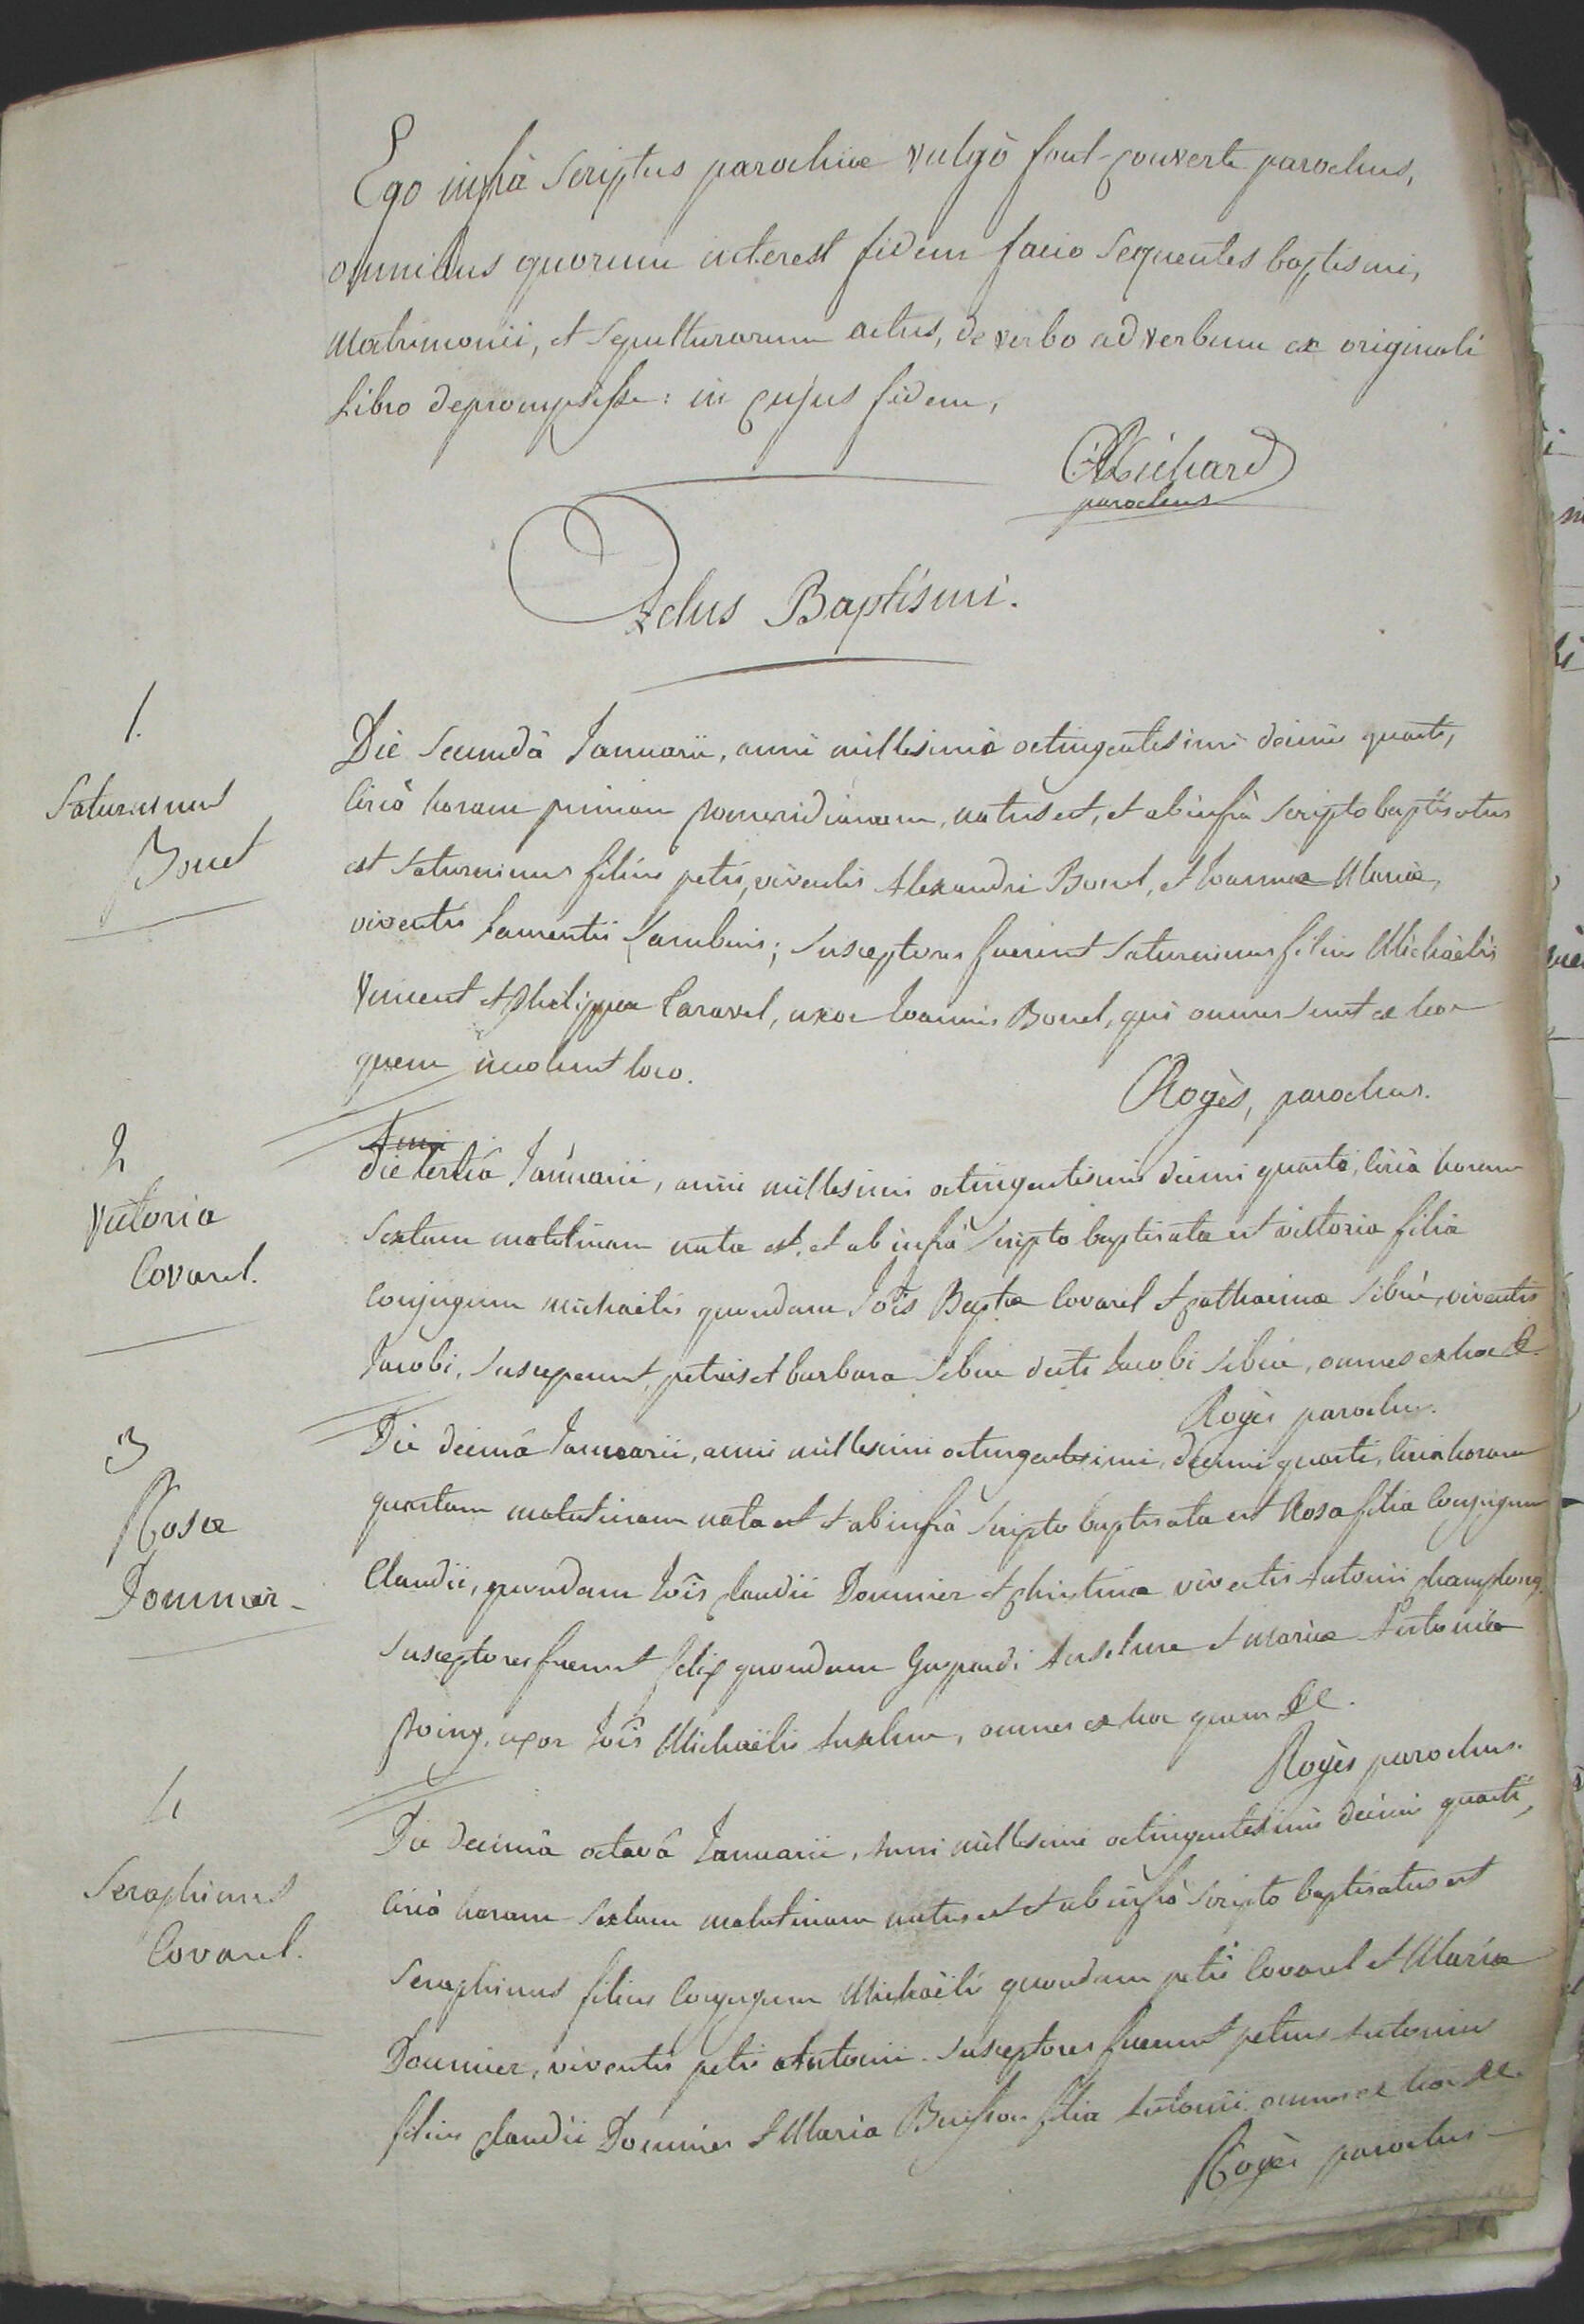 Ego infrà scriptus parochiæ vulgò font-couverte parochus,
omnibus quorum interest fidem facio sequentes baptismi,
matrimonii, et sepulturarum actus, de verbo ad verbum ex originali
libro deprompsisse: in cujus fidem,
Richard
parochus
Actus Baptismi.
1.
Saturninus
Bonet
Die secundâ Januarii, anni millesimi octingentesimi decimi quarti,
circà horam primam pomeridianam, natus est, et ab infrà scripto baptisatus
est Saturninus filius petri, viventis Alexandri Bonel, et Joannæ Mariæ,
viventis Laurentii ; susceptores fuerunt Saturninus filius Michaëlis
Vincent et philippa Caravel, uxor Joannis Bonel, qui omnes sunt ex hoc
quem incolunt loco.
Rogès, parochus.
2
Victoria
Covarel.
die tertiâ Januarii, anni millesimi octingentesimi decimi quarti, circà horam
sextam matutinam nata est, et ab infrà scripto baptisata est victoria filia
Conjugum michaëlis quondam Jois Baptæ Covarel et catharinæ Sibué, viventis
Jacobi, susceperunt, petrus et barbara Sibué dicti Jacobi Sibué, omnes ex hoc &
Rogès parochus.
3
Rosa
Dommier
Die decimâ Januarii, anni millesimi octingentesimi, decimi quarti, circà horam
quartam matutinam nata est et ab infrà scripto baptisata est Rosa filia Conjugum
Claudii, quondam Jois claudii Dommier et christinæ viventis Antonii
susceptores fuerunt felix quondam Gaspardi Anselme et Maria Antonia
uxor Jois Michaëlis Anselme, omnes ex hoc quem &c.
Rogès parochus.
4
Seraphinus
Covarel.
Die decimâ octavâ Januarii, Anni millesimi octingentesimi decimi quarti,
circà horam sextam matutinam natus est et ab infrà scripto baptisatus est
Seraphinus filius Conjugum Michaëlis quondam petri Covarel et Mariæ
Dommier, viventis petri Antonii. Susceptores fuerunt petrus Antonius
filius claudii Dommier et Maria Buisson filia Antonii omnes ex hoc &c.
Rogès parochus